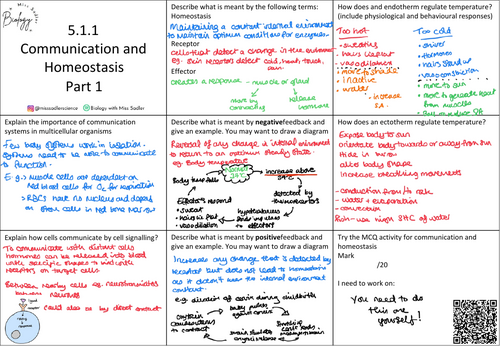 Miss Sadler
Biology
5.1.1
Communication and
Homeostasis
Part 1
@misssadlerscience Biology with Miss Sadler
Describe what is meant by the following terms:
Homeostasis
Maintaining a constant internal environment
to maintain optimum conditions for enzymes
Receptor
Cells that detect a change in the environment
e.g. skin receptors detect cold, heat, touch,
pain
Effector
Creates a response - muscle or gland
move by
release
hormone
How does and endotherm regulate temperature?
(include physiological and behavioural responses)
Too hot
- sweating
- hairs lay flat
- vasodilation
- move to shade
- inactive
- water
- increase
S.A
Too cold
- shiver
- Hormones
- hairs stand up
- vasoconstriction
- move to sun
- move to generate heat
from muscles
Explain the importance of communication
systems in multicellular organisms
Few body systems work in isolation.
Systems need to be able to communicate
to function.
E.g. > muscle cells are dependant on
red blood cells for O2 for respiration
> RBCs have no nucleus and depend
on stem cells in red bone marrow
Describe what is meant by negativefeedback and
give an example. You may want to draw a diagram
Reversal of any change in internal environment
to return to an optimum steady state.
eg. Body temperature
Normal
37°C
Body temp falls
increase above
37°C
detected by
thermoreceptors
Hypothalamus
effectors
Effectors respond
- sweat
- vasodilation
How does an ectotherm regulate temperature?
Expose body to sun
orientate body towards or away from sun
Hide in burrow
alter body shape
Increase breathing movements
- conduction from to rock
- water > evaporation
- convection
Explain how cells communicate by cell signalling?
To communicate with distant cells
hormones can be released into blood
with specific shapes to bind with
receptors on target cells
Between nearby cells eg. neurotransmitters
neurones
could also be by direct contact
Describe what is meant by positivefeedback and
give an example. You may want to draw a diagram
Increases any change that is detected by
receptor but does not lead to homeostasis
as it doesn't keep the internal environment
constant
e.g. dilation of cervix during childbirth
Try the MCQ activity for communication and
homeostasis
Mark
/20
I need to work on:
You need to do
this one
yourself!